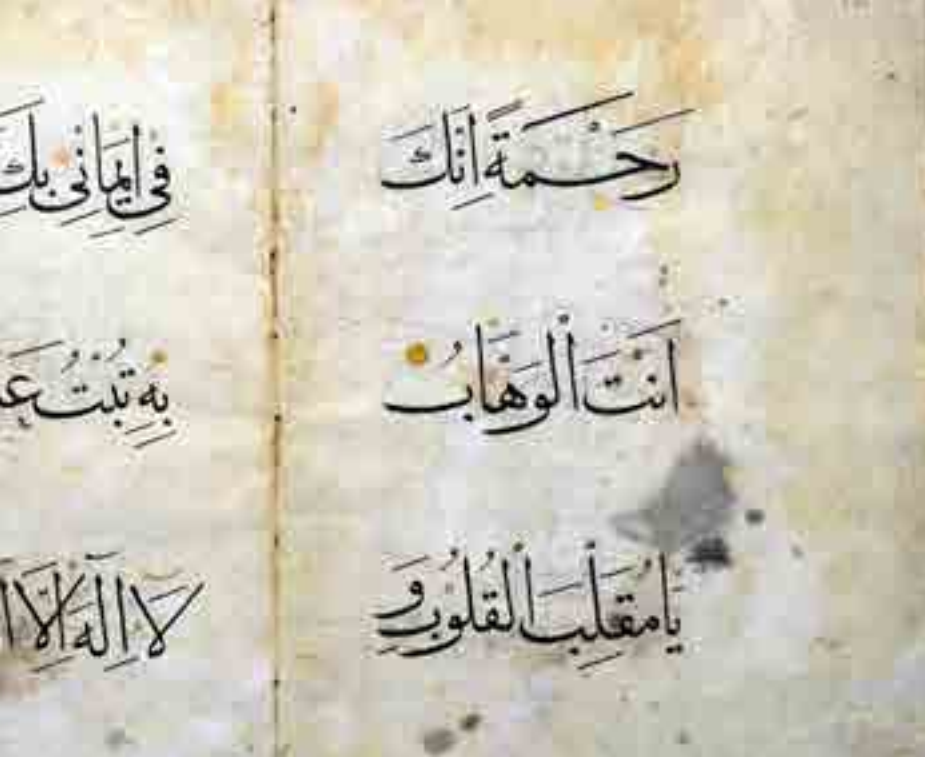 رَحْمَةً اِنَّكَ
اَنْتَ الْوَهَّابُ
يَا مُقَلِّبَ الْقُلُوْبِ وَ
فِى اِيمَانِى بِكَ
بِهِ تُبْتُ
لَا اِلٰهَ اِلَّا